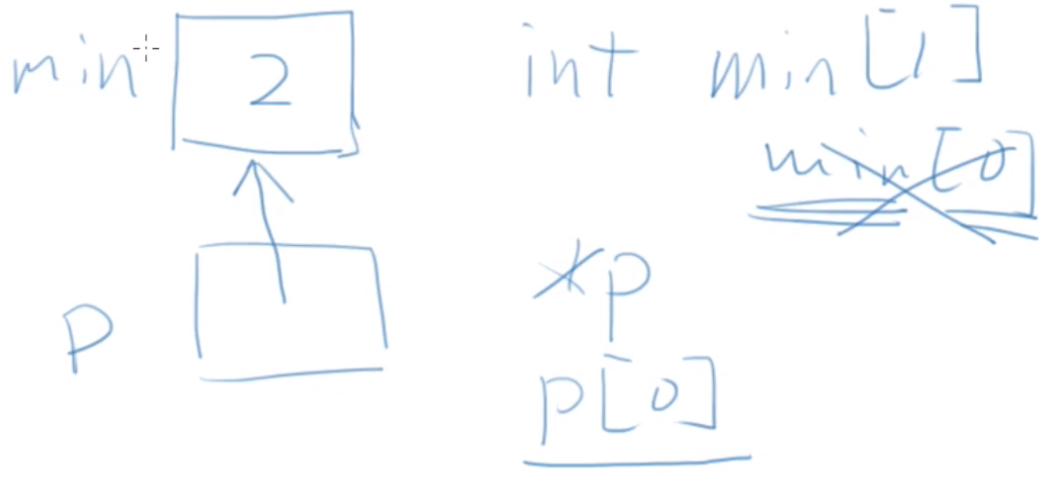 min 2 int min[1]
min[0]
*p
p
p[0]